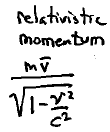 relativistic
momentum
mv̅
√1-v²
c²